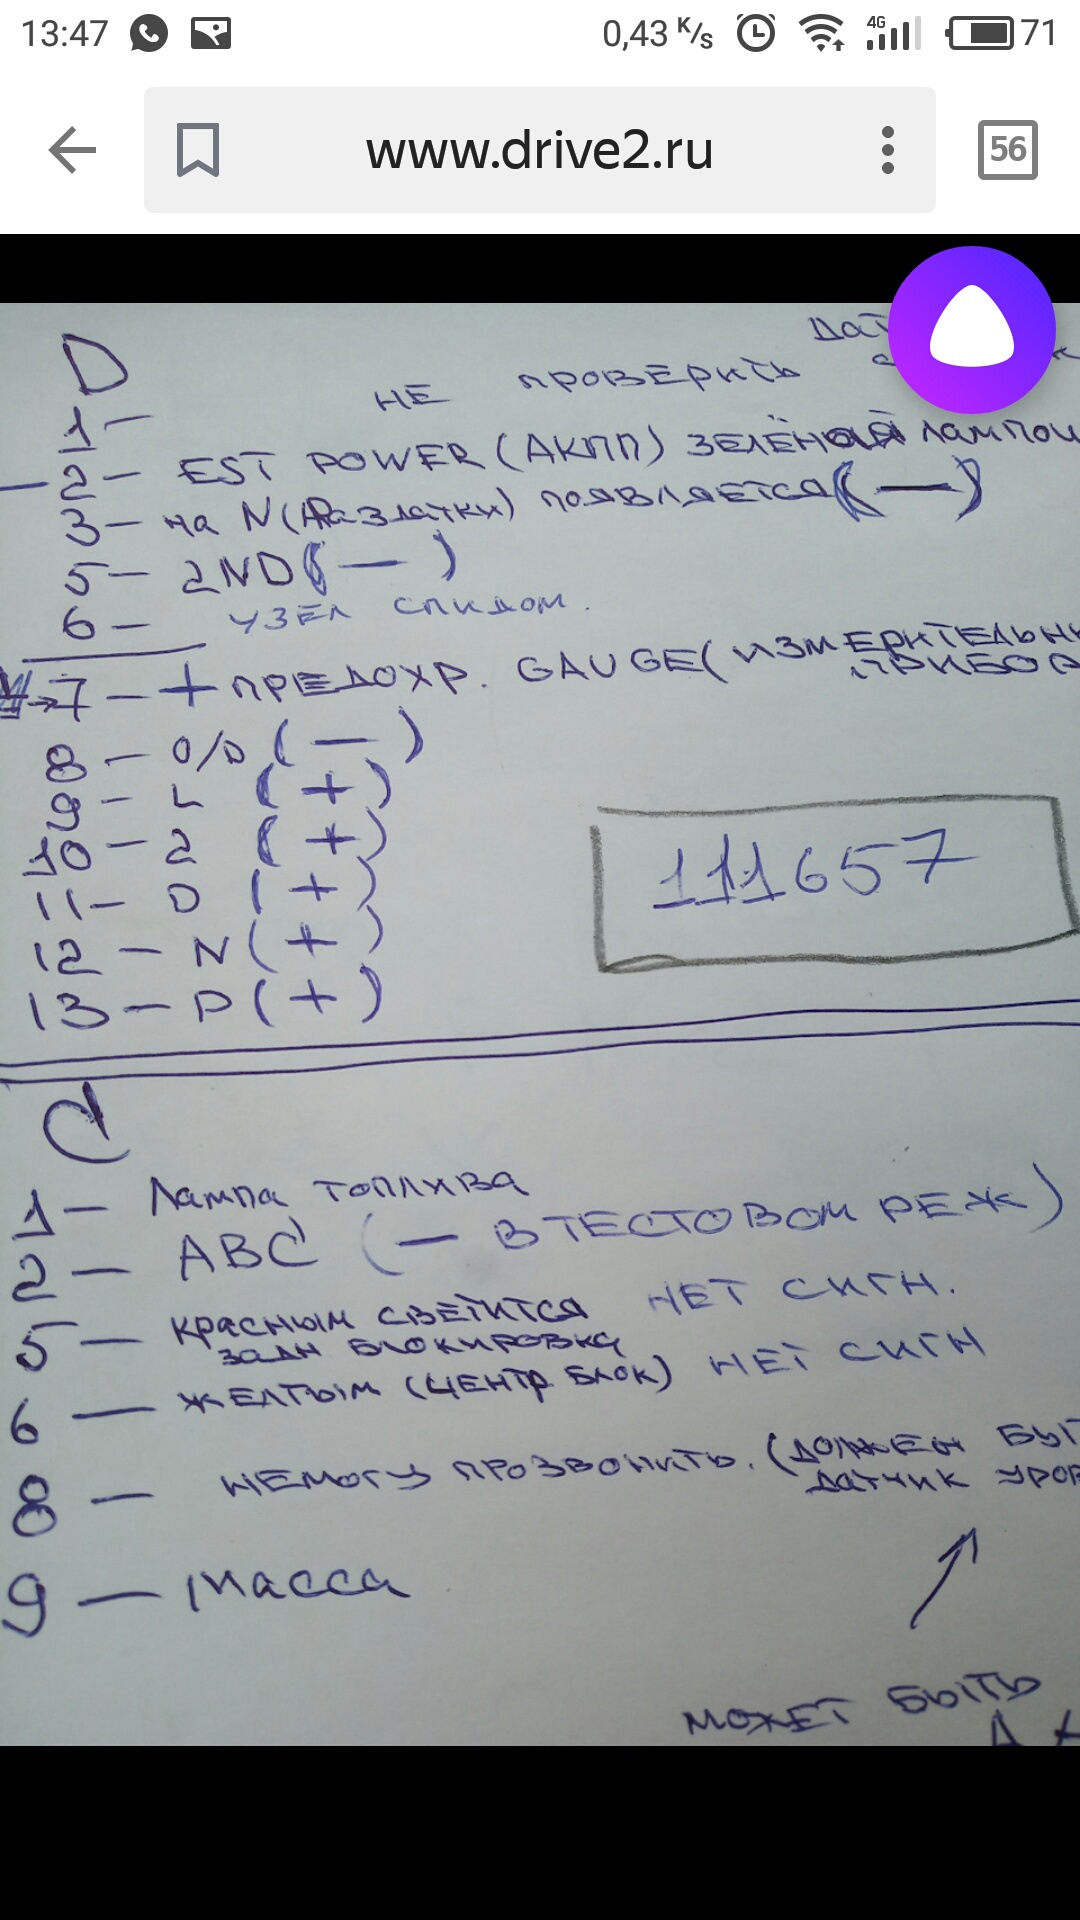 13:47 0,43 K/s 4G 71
www.drive2.ru 56
D
дат
1 — не проверить
2 — EST POWER (АКПП) зелёной лампой
3 — на N (Раздатки) появляется (—)
5 — 2ND (—)
6 — узел спидом.
7 — + предохр. GAUGE (измерительн
прибор
8 — O/D (—)
9 — L (+)
10 — 2 (+)
11 — D (+)
12 — N (+)
13 — P (+)
111657
C
1 — Лампа топлива
2 — АВС (— в тестовом реж)
5 — красным светится нет сигн.
задн блокировка
6 — желтым (центр блок) нет сигн
8 — немогу прозвонить. (должен быт
датчик уров
9 — масса
может быть